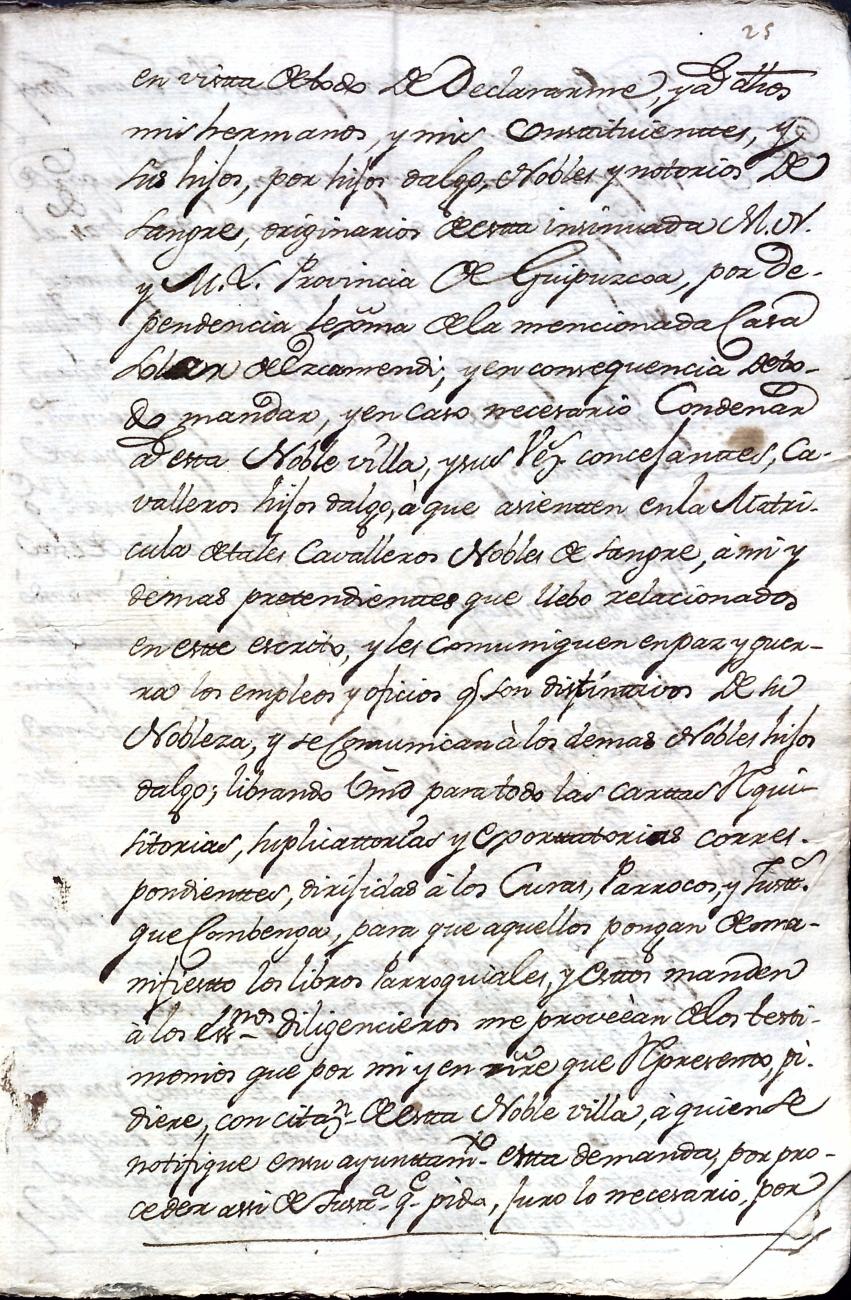 25
en vistta de todo De Declararme, y a dhos
mis hermanos, y mis Constituienttes, y
sus hijos, por hijos dalgo, Nobles y notorios De
sangre, originarios de estta insinuada M. N.
y M. L. Provincia De Guipuzcoa, por de-
pendencia lexma de la mencionada Casa
Solar de Ezcamendi; y en consequencia de to-
do mandar, y en caso necesario Condenar
a esta Noble villa, y sus Vez.s concejanttes, Ca-
valleros hijos dalgo, à que asientten en la Matri-
cula de tales Cavalleros Nobles de sangre, à mi y
demas pretendienttes que llebo relacionados
en estte escrito, y les Comuniquen en paz y guer-
ra los empleos y oficios q.e son disttinttivos De su
Nobleza, y se Comunican à los demas Nobles hijos
dalgo; librando Vmd para todo las carttas Requi-
sitorias, suplicattorias y exporttatorias corres-
pondienttes, dirijidas à los Curas, Parrocos, y Justt.s
que Combenga, para que aquellos pongan de ma-
nifiestto los libros Parroquiales, y esttos manden
à los Ess.nos diligencieros me proveèan de los testi-
monios que por mi y en nre que Represento, pi-
diere, con citaz.n de estta Noble villa, à quien se
notifique en su ayunttam.to estta demanda, por pro-
ceder assi de Justt.a q.e pido, juro lo necesario, por